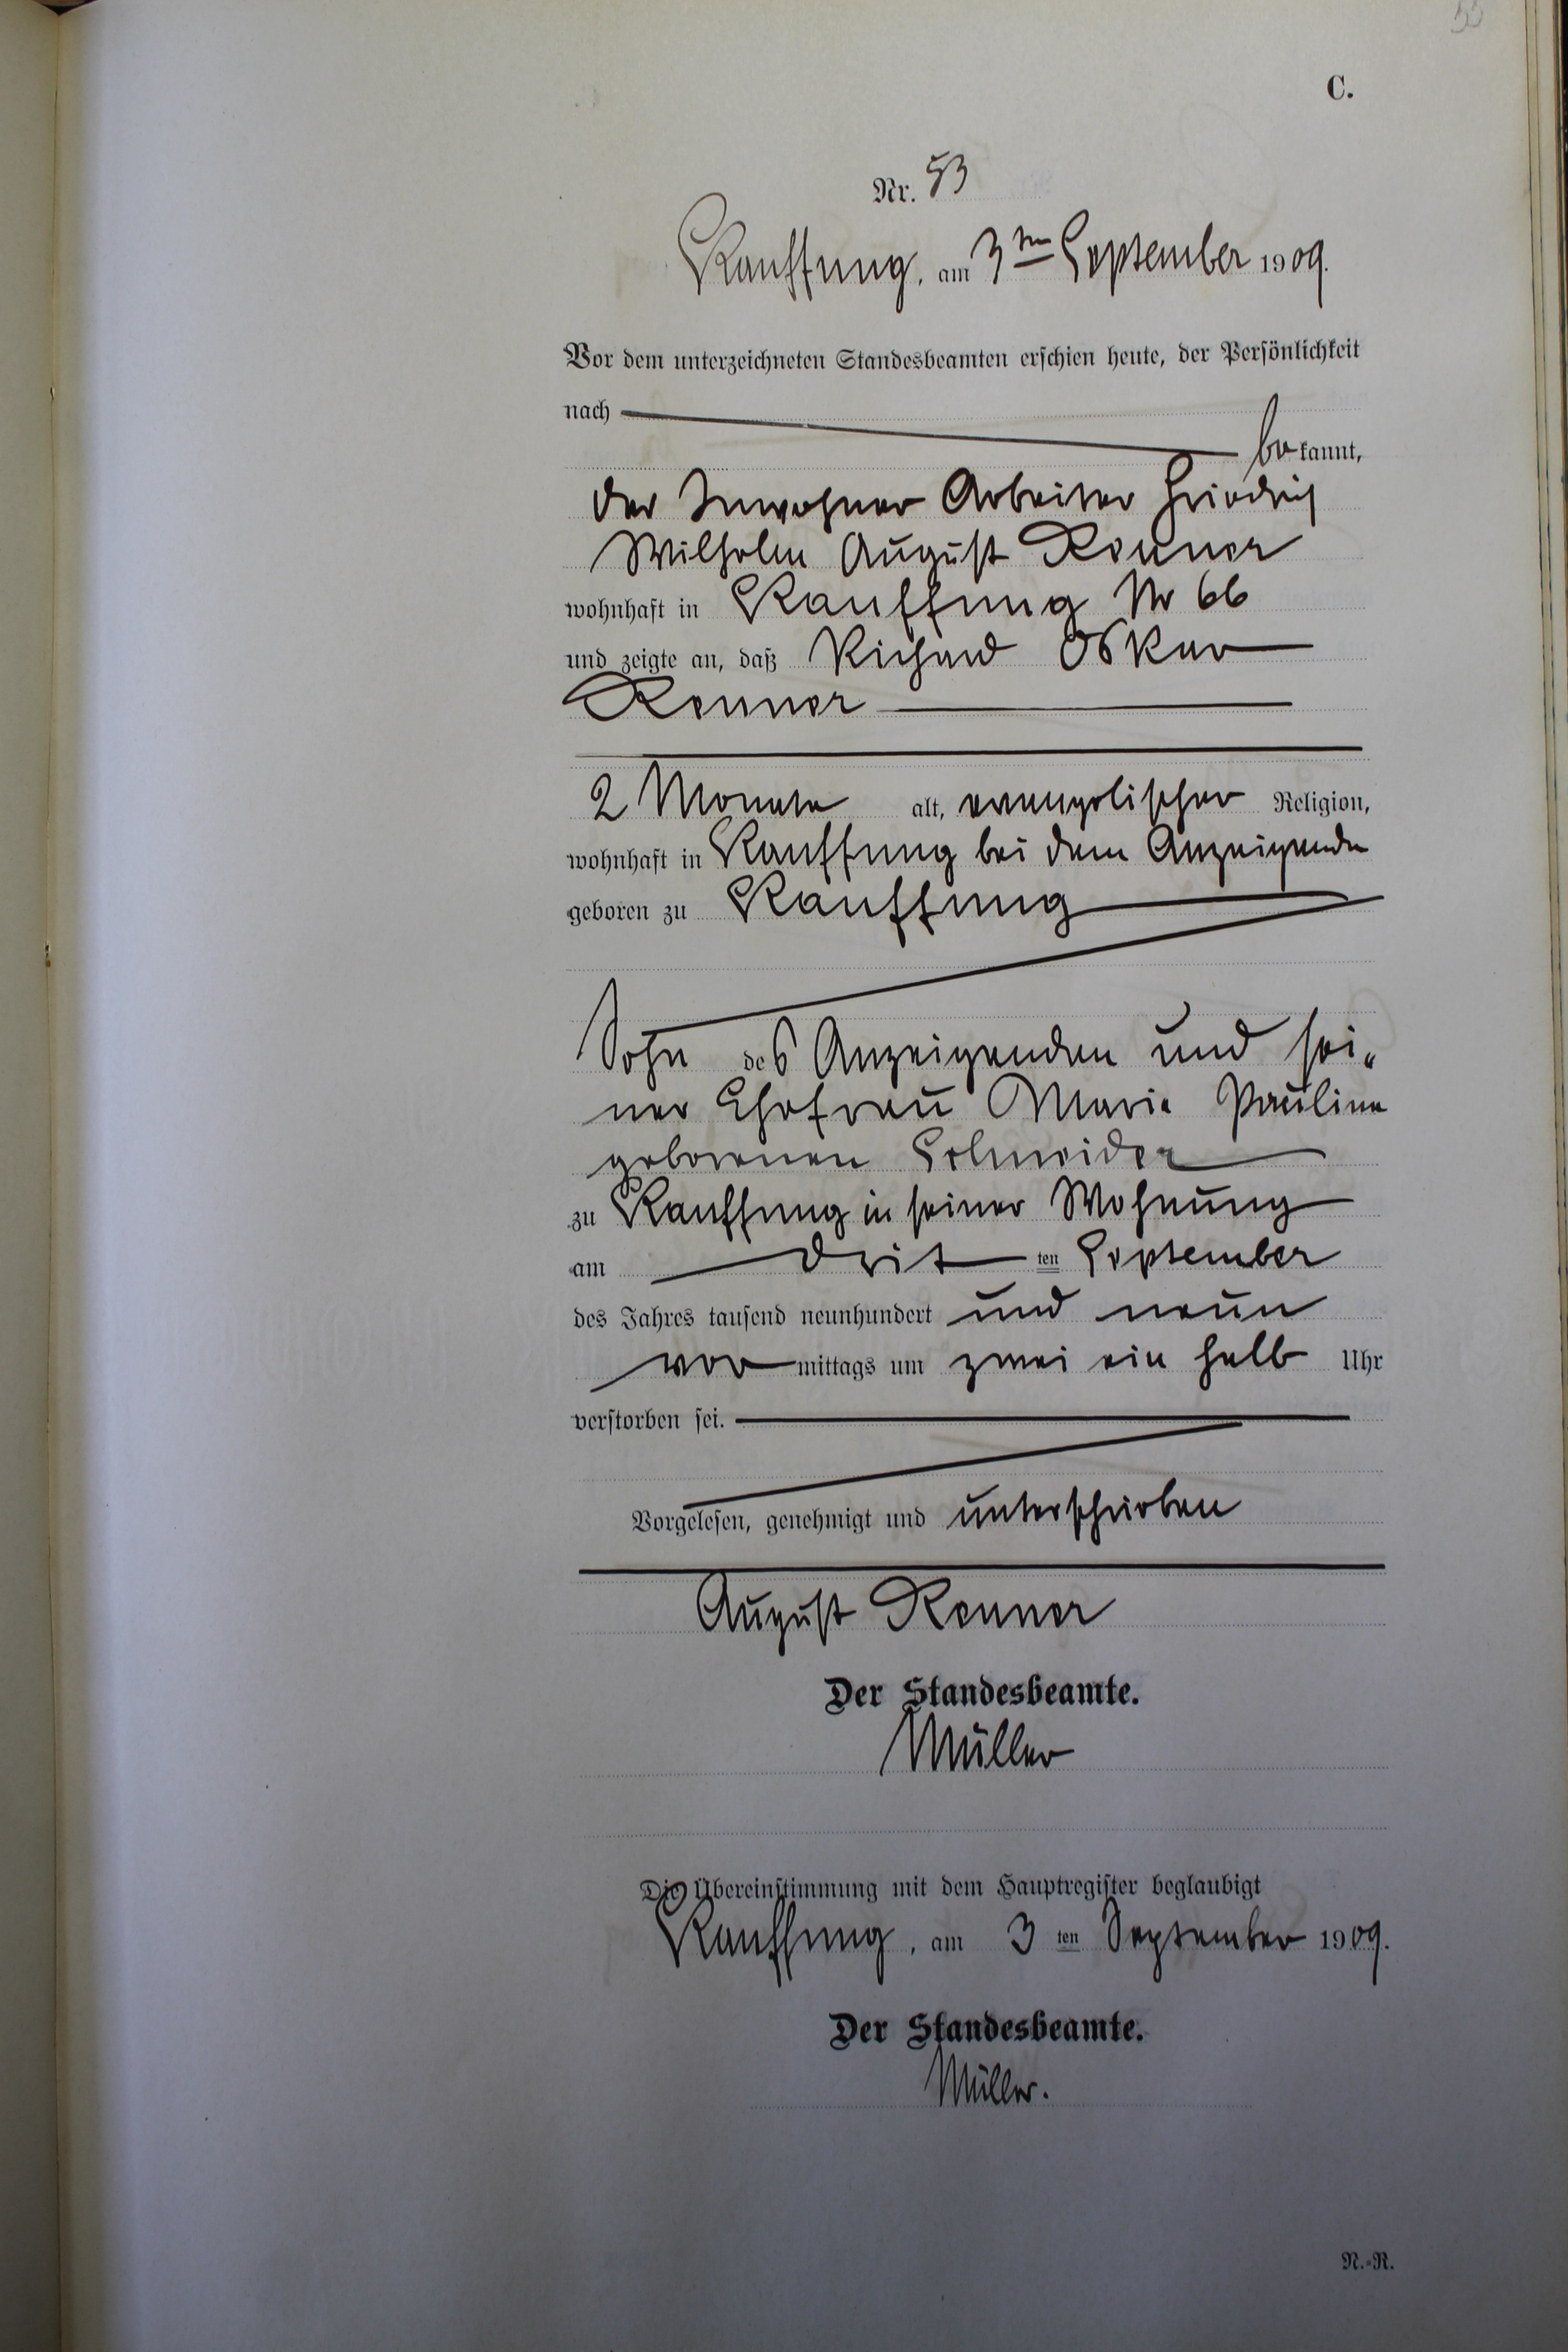 53
C.
Nr. 53
Kauffung, am 3ten September 1909.
Vor dem unterzeichneten Standesbeamten erschien heute, der Persönlichkeit
nach
bekannt,
der Inwohner Arbeiter Friedrich
Wilhelm August Renner
wohnhaft in Kauffung Nr 66
und zeigte an, daß Richard Oskar
Renner
2 Monate alt, evangelischer Religion,
wohnhaft in Kauffung bei dem Anzeigenden
geboren zu Kauffung
Sohn des Anzeigenden und sei-
ner Ehefrau Marie Pauline
geborenen Schneider
zu Kauffung in seiner Wohnung
am drit ten September
des Jahres tausend neunhundert und neun
vor mittags um zwei ein halb Uhr
verstorben sei.
Vorgelesen, genehmigt und unterschrieben
August Renner
Der Standesbeamte.
Müller
Die Übereinstimmung mit dem Hauptregister beglaubigt
Kauffung, am 3 ten September 1909.
Der Standesbeamte.
Müller.
N.-R.